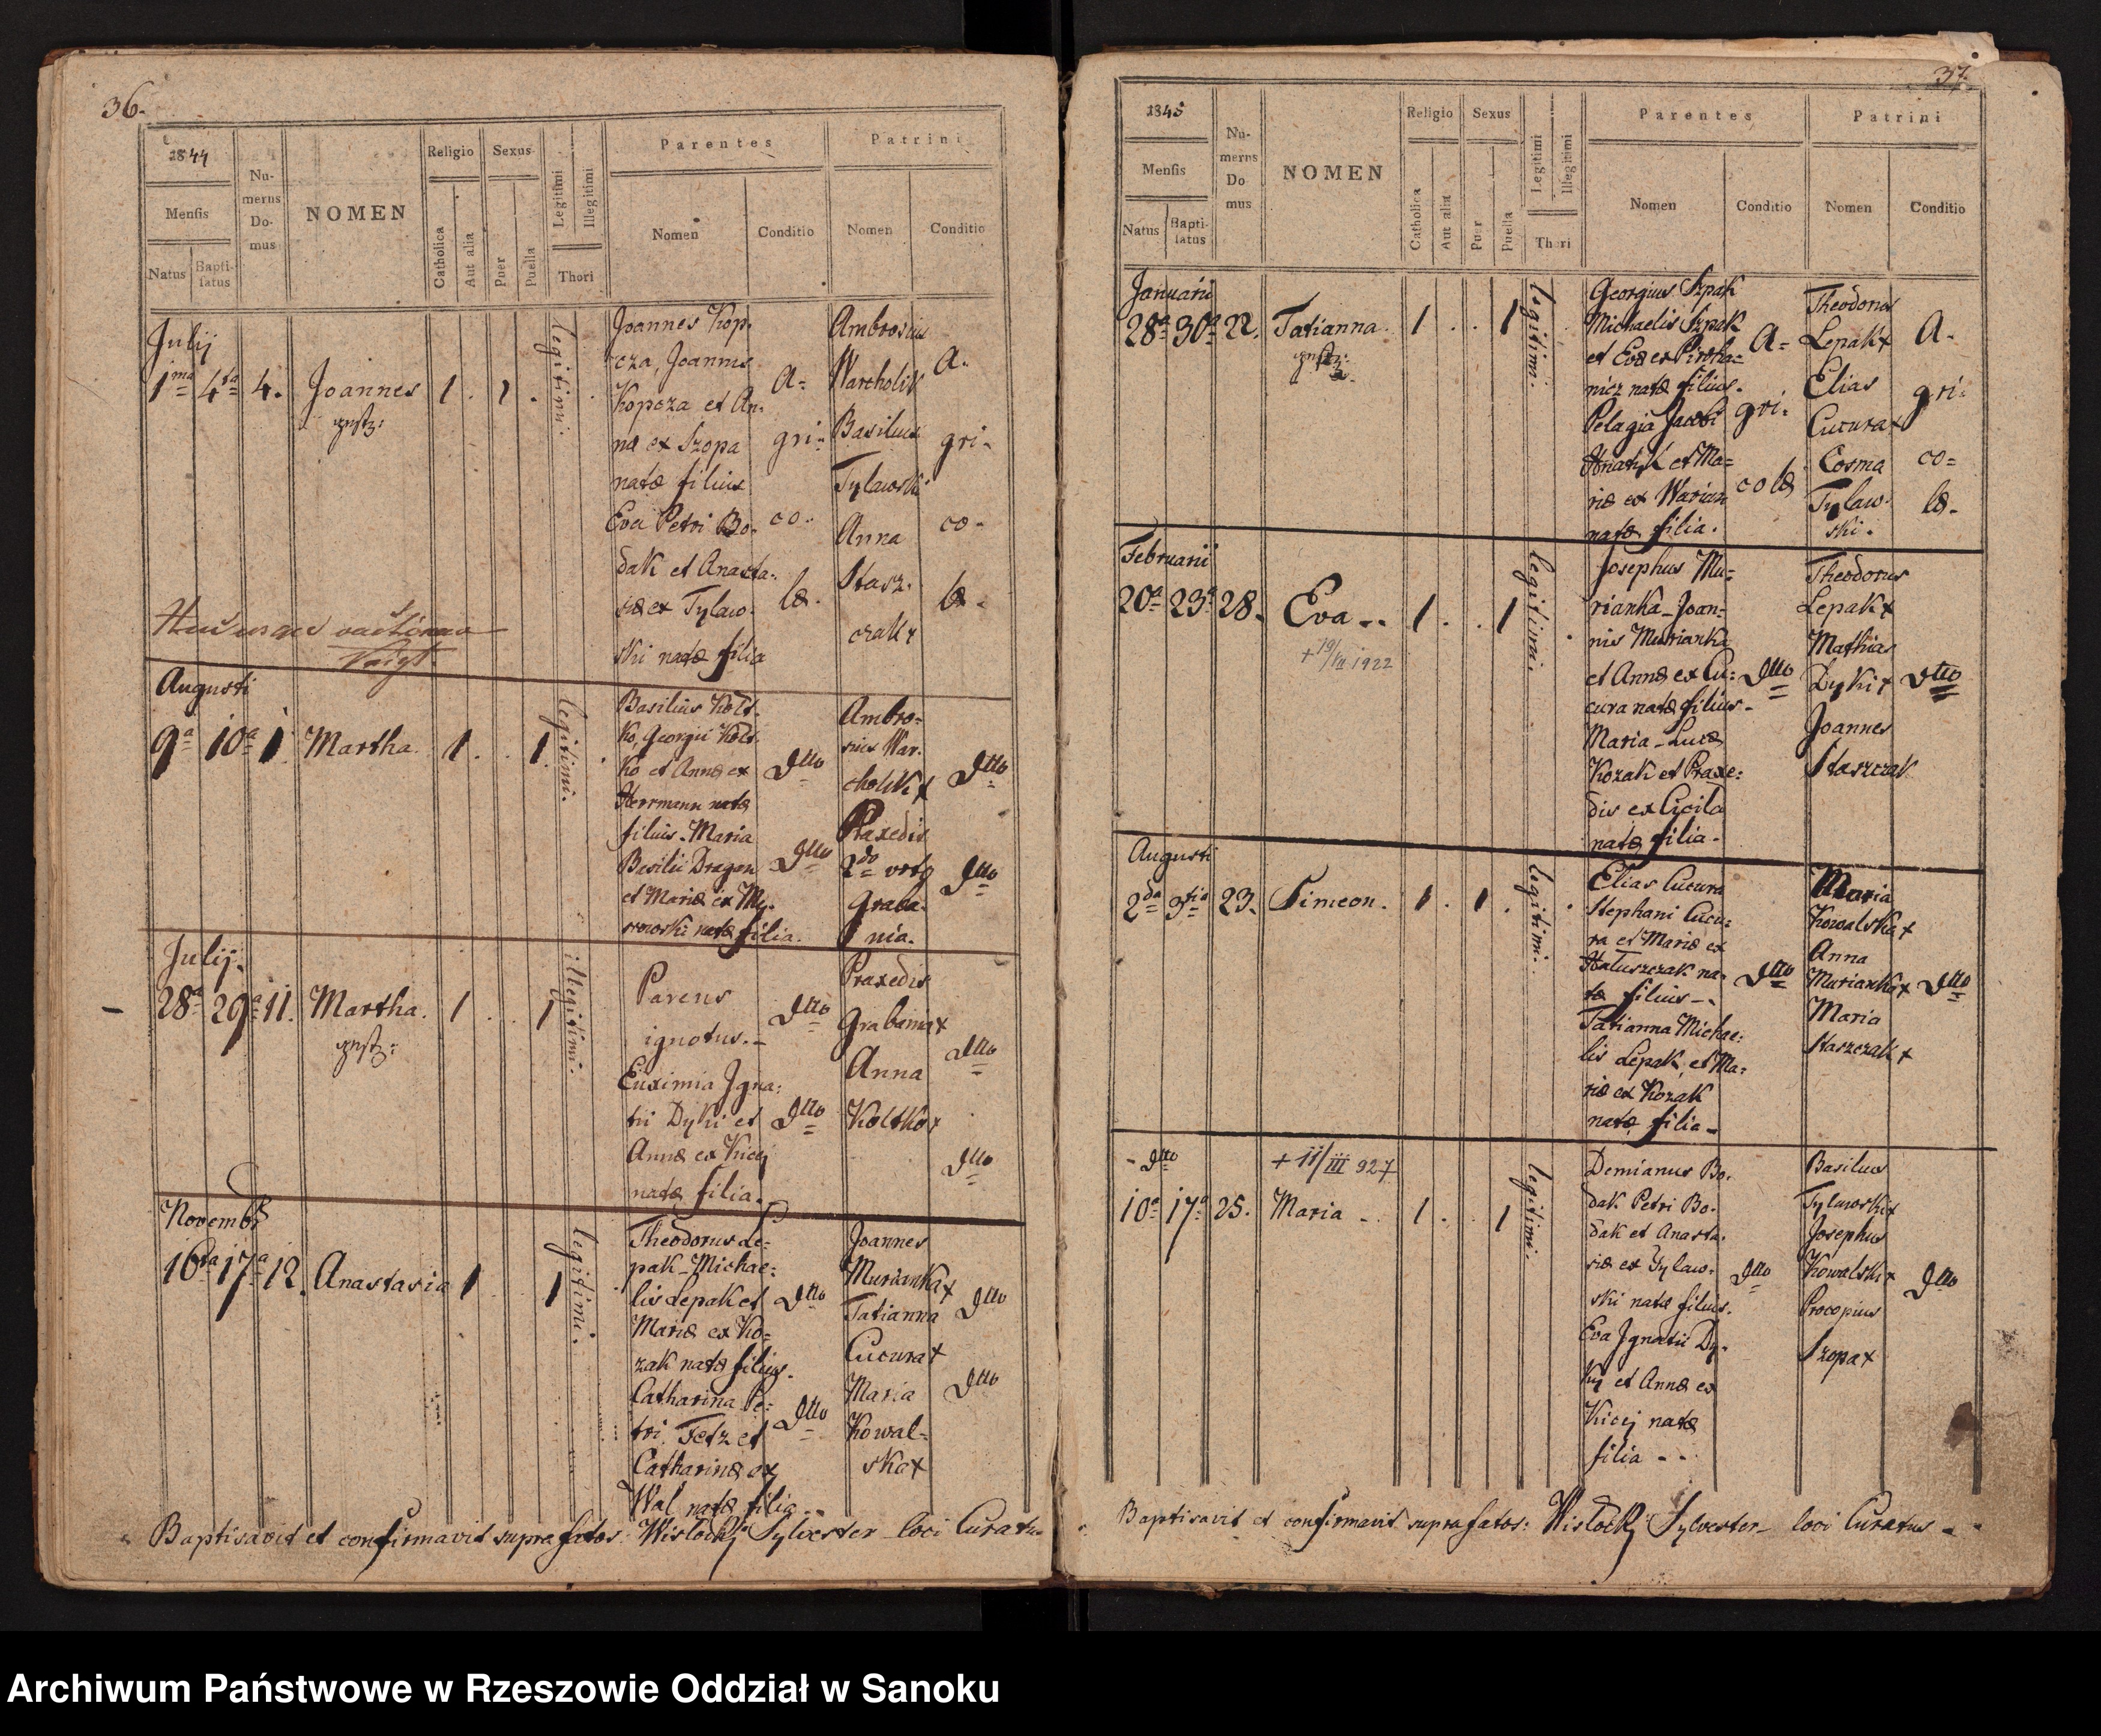 36.
1844
Mensis
Natus
Bapti-
satus
Nu-
merus
Do-
mus
NOMEN
Religio
Catholica
Aut alia
Sexus
Puer
Puella
Legitimi
Illegitimi
Thori
Parentes
Nomen
Conditio
Patrini
Nomen
Conditio
Julij
1ma 4ta 4. Joannes 1. 1.
legitimi.
Joannes Kop-
cza, Joannis
Kopcza et An-
næ ex Szopa
natæ filius
Eva Petri Bo-
dak et Anasta-
siæ ex Tylaw-
ski natæ filia
A-
gri-
co-
læ.
Ambrosius
Warcholik
Basilius
Tylawski
Anna
Stasz-
czak x
A-
gri-
co-
læ-
Augusti
9a 10a 1 Martha. 1. 1.
legitimi.
Basilius Kolt-
ko, Georgii Kolt-
ko et Annæ ex
Herrmann natæ
filius. Maria
Basilii Dragan
et Mariæ ex My-
natæ filia.
Dtto
Dtto
Ambro-
sius War-
cholik x
Praxedis
2do voto
Graba-
nia.
Dtto
Dtto
Julij.
28a 29a 11. Martha. 1 1
illegitimi.
Parens
ignotus.-
Euximia Igna-
tii Dyki et
Annæ ex Kicej
natæ filia.
Dtto
Dtto
Praxedis
Grabania x
Anna
Koltko x
Dtto
Dtto
Novembr
16ta 17a 12. Anastasia 1 1
legitimi.
Theodorus Le-
pak-Michae-
lis Lepak et
Mariæ ex Ko-
zak natæ filius.
Catharina Pe-
tri Fetz et
Catharinæ ex
Wal natæ filia..
Dtto
Dtto
Joannes
Murianka x
Tatianna
Cucura x
Maria
Kowal-
ska x
Dtto
Dtto
Baptisavit et confirmavit supra fatos: Wislocky Sylvester loci Curatus
37.
1845
Mensis
Natus
Bapti-
satus
Nu-
merus
Do
mus
NOMEN
Religio
Catholica
Aut alia
Sexus
Puer
Puella
Legitimi
Illegitimi
Thori
Parentes
Nomen
Conditio
Patrini
Nomen
Conditio
Januarii
28a 30a 22. Tatianna. 1. . 1
legitimi.
Georgius Szpak
Michaelis Szpak
et Evæ ex Piroha-
nicz natæ filius.
Pelagia Jacobi
Hnatyk et Ma-
riæ ex Warian
natæ filia.
A-
gri-
colæ
Theodorus
Lepak x
Elias
Cucura x
Cosma
Tylaw-
ski.
A-
gri-
co-
læ-
Februarii
20a 23a 28. Eva .. 1. . 1
+ 19/VII 1922
legitimi.
Josephus Mu-
rianka-Joan-
nis Murianka
et Annæ ex Cu-
cura natæ filius-
Maria-Lucæ
Kozak et Praxe-
dis ex Cicila
natæ filia-
Dtto
Theodorus
Lepak x
Mathias
Dyki x
Joannes
Staszczak
Dtto
Augusti
2da 3tia 23. Simeon. 1. 1.
legitimi.
Elias Cucura
Stephani Cucu-
ra et Mariæ ex
Hatuszczak na-
tæ filius-.
Tatianna Michae-
lis Lepak, et Ma-
riæ ex Kozak
natæ filia-
Dtto
Maria
Kowalska x
Anna
Murianka x
Maria
Staszczak x
Dtto
- Dtto
+ 11/III 927
10a 17a 25. Maria - . 1. 1
legitimi.
Demianus Bo-
dak Petri Bo-
dak et Anasta-
siæ ex Tylaw-
ski natæ filius.
Eva Ignatii Dy-
ky et Annæ ex
Kicej natæ
filia - -
Dtto
Basilius
Tylawski x
Josephus
Kowalski x
Procopius
Szopa x
Dtto
Baptisavit et confirmavit supra fatos: Wislocky Sylvester- loci Curatus - -
Archiwum Państwowe w Rzeszowie Oddział w Sanoku